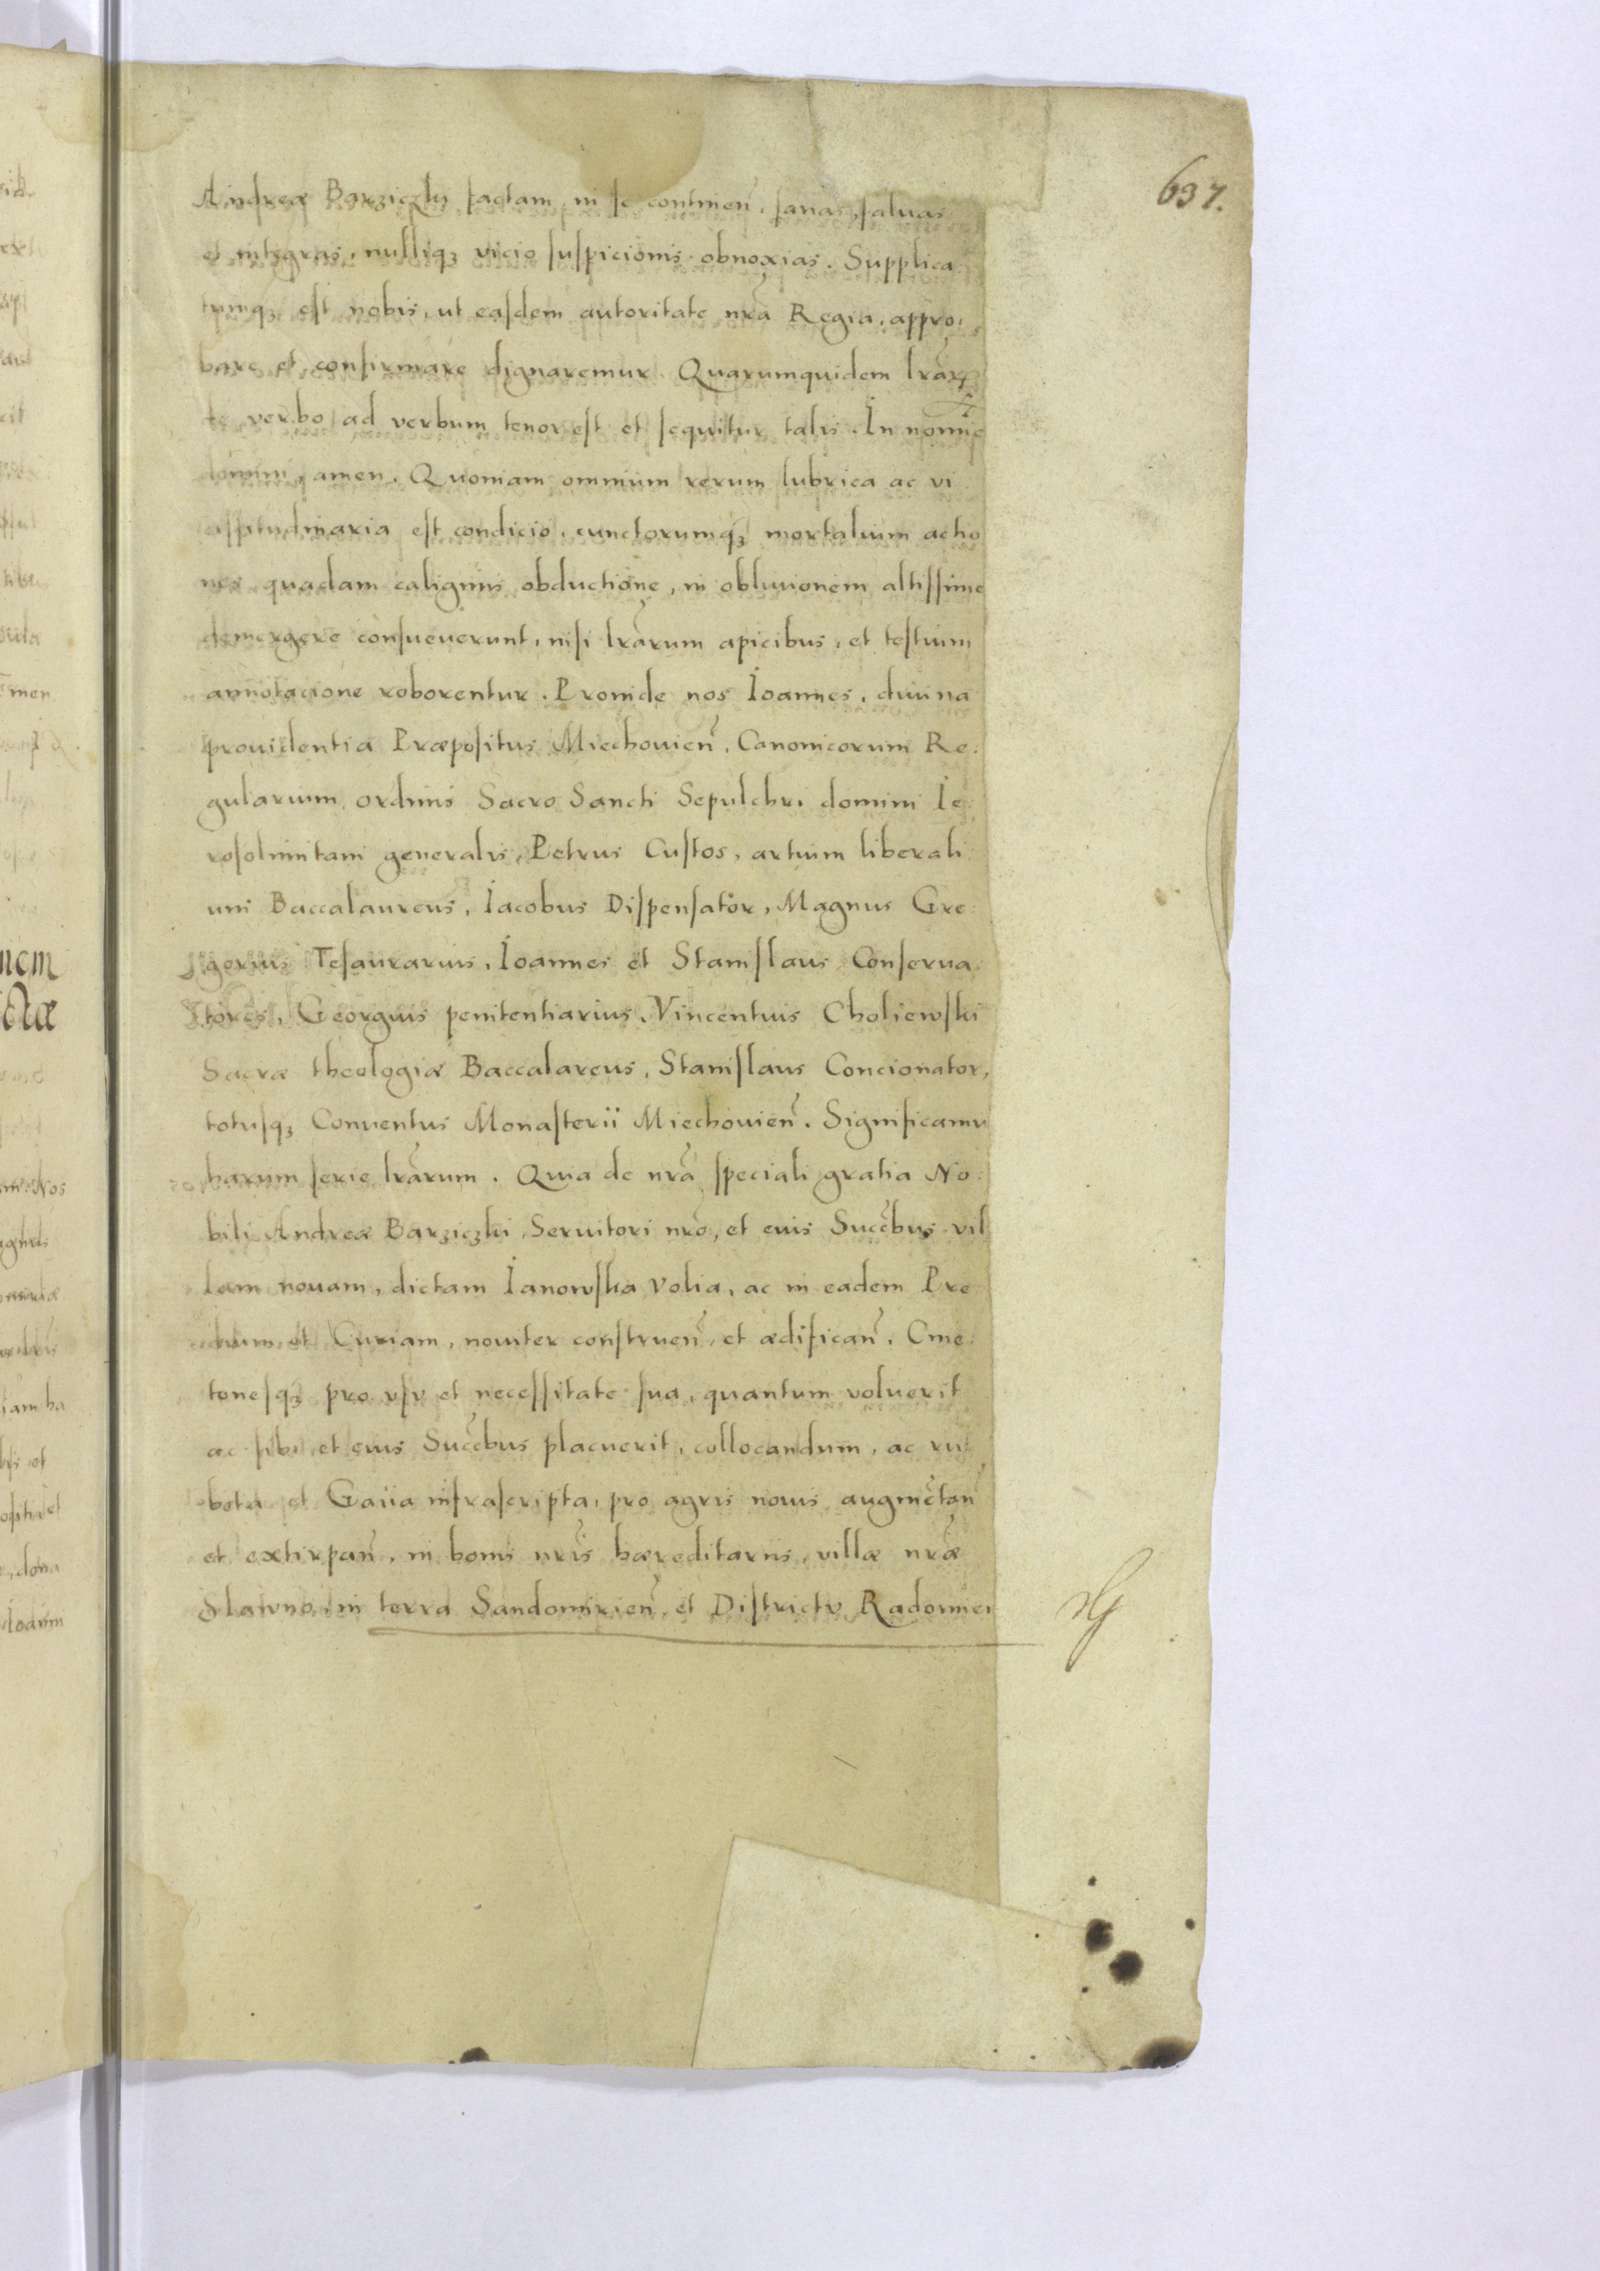 637.
Andreæ Barziczky factam, in se continen̄, sanas, saluas
et integras, nulliq3 vicio suspicionis obnoxias. Supplica
tumq3 est nobis, ut easdem autoritate nr̄a Regia, appro,
bare et confirmare dignaremur. Quarumquidem lr̄arꝝ
de verbo ad verbum tenor est et sequitur talis. In nomīe
domini, amen. Quoniam omnium rerum lubrica ac vi
cissitudinaria est condicio, cunctorumq3 mortalium actio
nes quadam caliginis obductione, in obliuionem altissime
demergere consueuerunt, nisi lr̄arum apicibus, et testium
annotacione roborentur. Proinde nos Ioannes, diuina
prouidentia Præpositus Miechouien̄, Canonicorum Re:
gularium ordinis Sacro Sancti Sepulchri domini Ie:
rosolimitani generalis, Petrus Custos, artium liberali
um Baccalaureus, Iacobus Dispensator, Magnus Gre:
gorius Tesaurarius, Ioannes et Stanislaus Conserua:
tores, Georgius penitentiarius, Vincentius Choliewski
Sacræ theologiæ Baccalareus, Stanislaus Concionator,
totusq3 Conuentus Monasterii Miechouien̄. Significamus
harum serie lr̄arum. Quia de nr̄a speciali gratia No:
bili Andreæ Barziczki, Seruitori nr̄o, et eius Succ̄bus vil
lam nouam, dictam Ianowska Volia, ac in eadem Pre
dium et Curiam, nouiter construen̄, et ædifican̄. Cme:
tonesq3 pro vsv et necessitate sua, quantum voluerit
ac sibi et eius Succ̄bus placuerit, collocandum, ac ru
beta et Gaiia infrascripta, pro agris nouis augmētan̄
et extirpan̄, in bonis nr̄is hæreditariis, villæ nr̄æ
Slawno, in terra Sandomirien̄, et Districtv Radomien